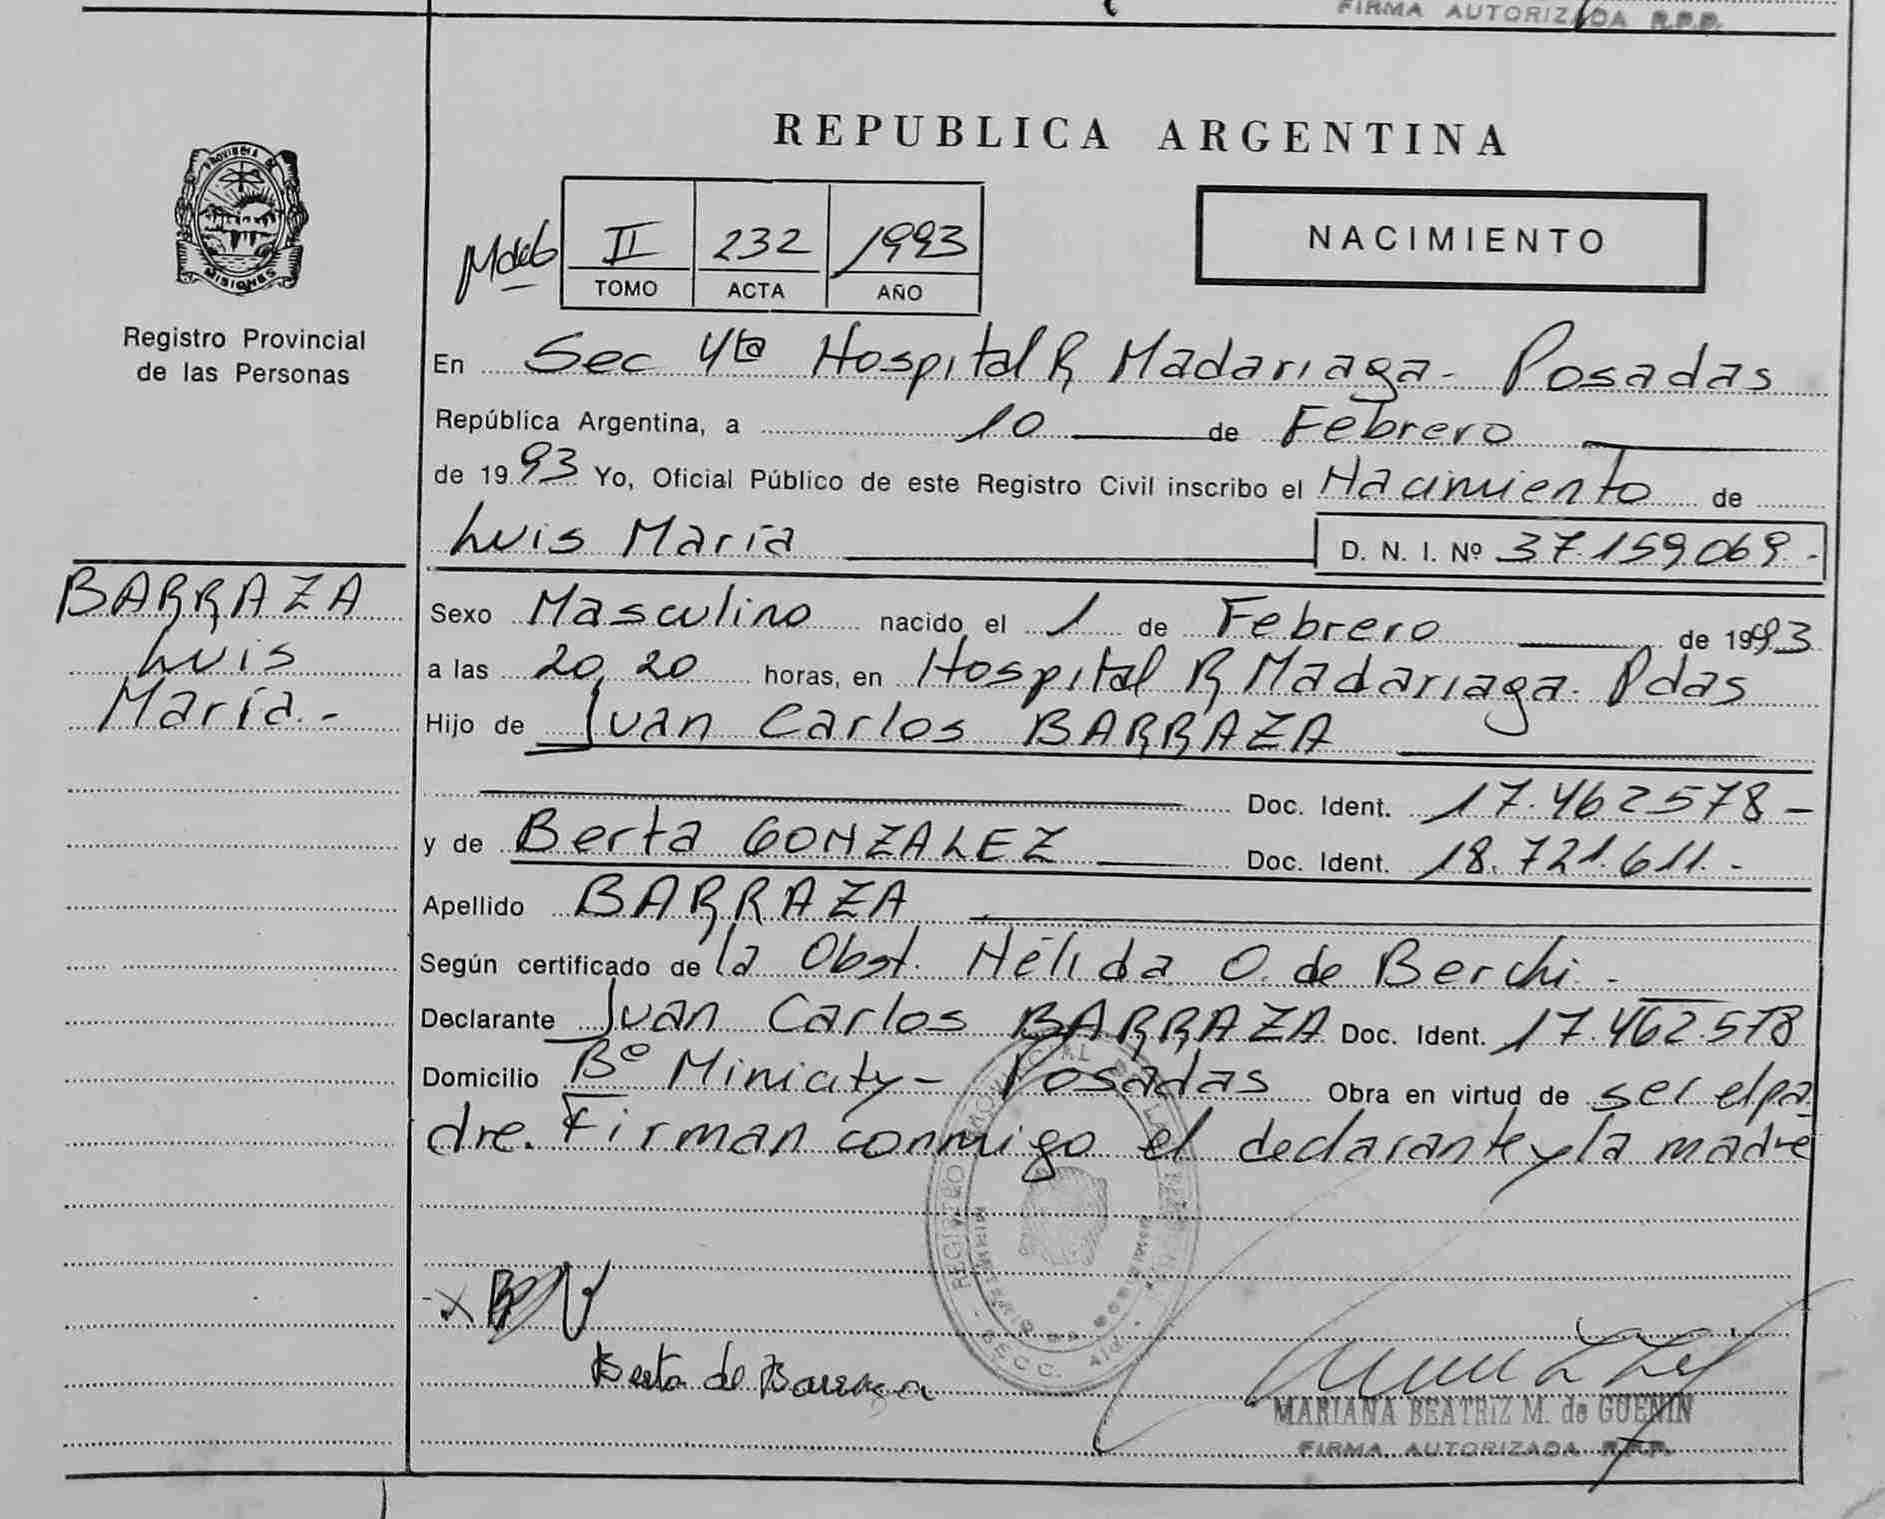 FIRMA AUTORIZADA R.P.P.
REPUBLICA ARGENTINA
PROVINCIA DE
MISIONES
Registro Provincial
de las Personas
II 232 1993
TOMO ACTA AÑO
NACIMIENTO
En Sec 4ta Hospital R Madariaga - Posadas
República Argentina, a 10 de Febrero
de 1993 Yo, Oficial Público de este Registro Civil inscribo el Nacimiento de
Luis María D. N. I. Nº 37.159.069.-
BARRAZA
Luis
María.-
Sexo Masculino nacido el 1 de Febrero de 1993
a las 20,20 horas, en Hospital R Madariaga. Pdas
Hijo de Juan Carlos BARRAZA
Doc. Ident. 17.462578-
y de Berta GONZALEZ Doc. Ident. 18.721.611.-
Apellido BARRAZA
Según certificado de la Obst. Nélida O. de Berchi.-
Declarante Juan Carlos BARRAZA Doc. Ident. 17.462.578
Domicilio Bº Minicity - Posadas Obra en virtud de ser el pa
dre. Firman conmigo el declarante y la madre
REGISTRO PROVINCIAL DE LAS
MINISTERIO DE GOBIERNO
SECC.
Berta de Barraza
MARIANA BEATRIZ M. de GUENIN
FIRMA AUTORIZADA R.P.P.